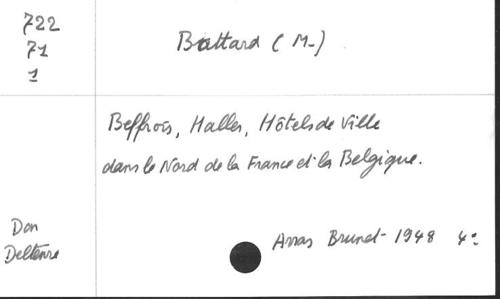 722
71
1
Battard (M-)
Beffrois, Halles, Hôtels de Ville
dans le Nord de la France et la Belgique.
Arras Brunet - 1948 4º
Don
Deltenre